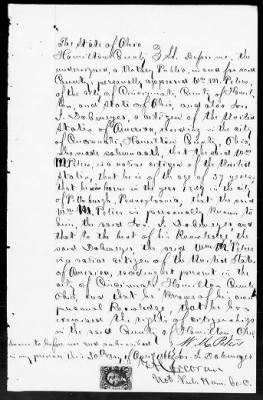 The State of Ohio
Hamilton County } SS. Before me, the
undersigned, a Notary Public, in and for said
County, personally appeared Wm M. Peters,
of the City of Cincinnati, County of Hamil-
ton, and State of Ohio, and also Jos.
J. Dobmeyer, a citizen of the United
States of America, residing in the city
of Cincinnati, Hamilton County, Ohio,
who made solemn oath, that the said Wm
M. Peters, is a native citizen of the United
States, that he is of the age of 37 years,
that he was born in the year in the city
of Pittsburgh, Pennsylvania, that the said
Wm M. Peters is personally known to
him, the said Jos. J. Dobmeyer and
that to the best of his Knowledge, the
said Dobmeyer the said Wm M. Peters
is a native citizen of the United States
of America, residing at present in the
city of Cincinnati Hamilton County
Ohio, and that he Knows of his own
personal Knowledge, that he has
exercised the rights of citizenship
in the said County of Hamilton, Ohio
Sworn to before me and subscribed W. M. Peters
in my presence this 30 day of Jos. J. Dobmeyer
Corcoran
Not. Pub. Ham. Co. O.